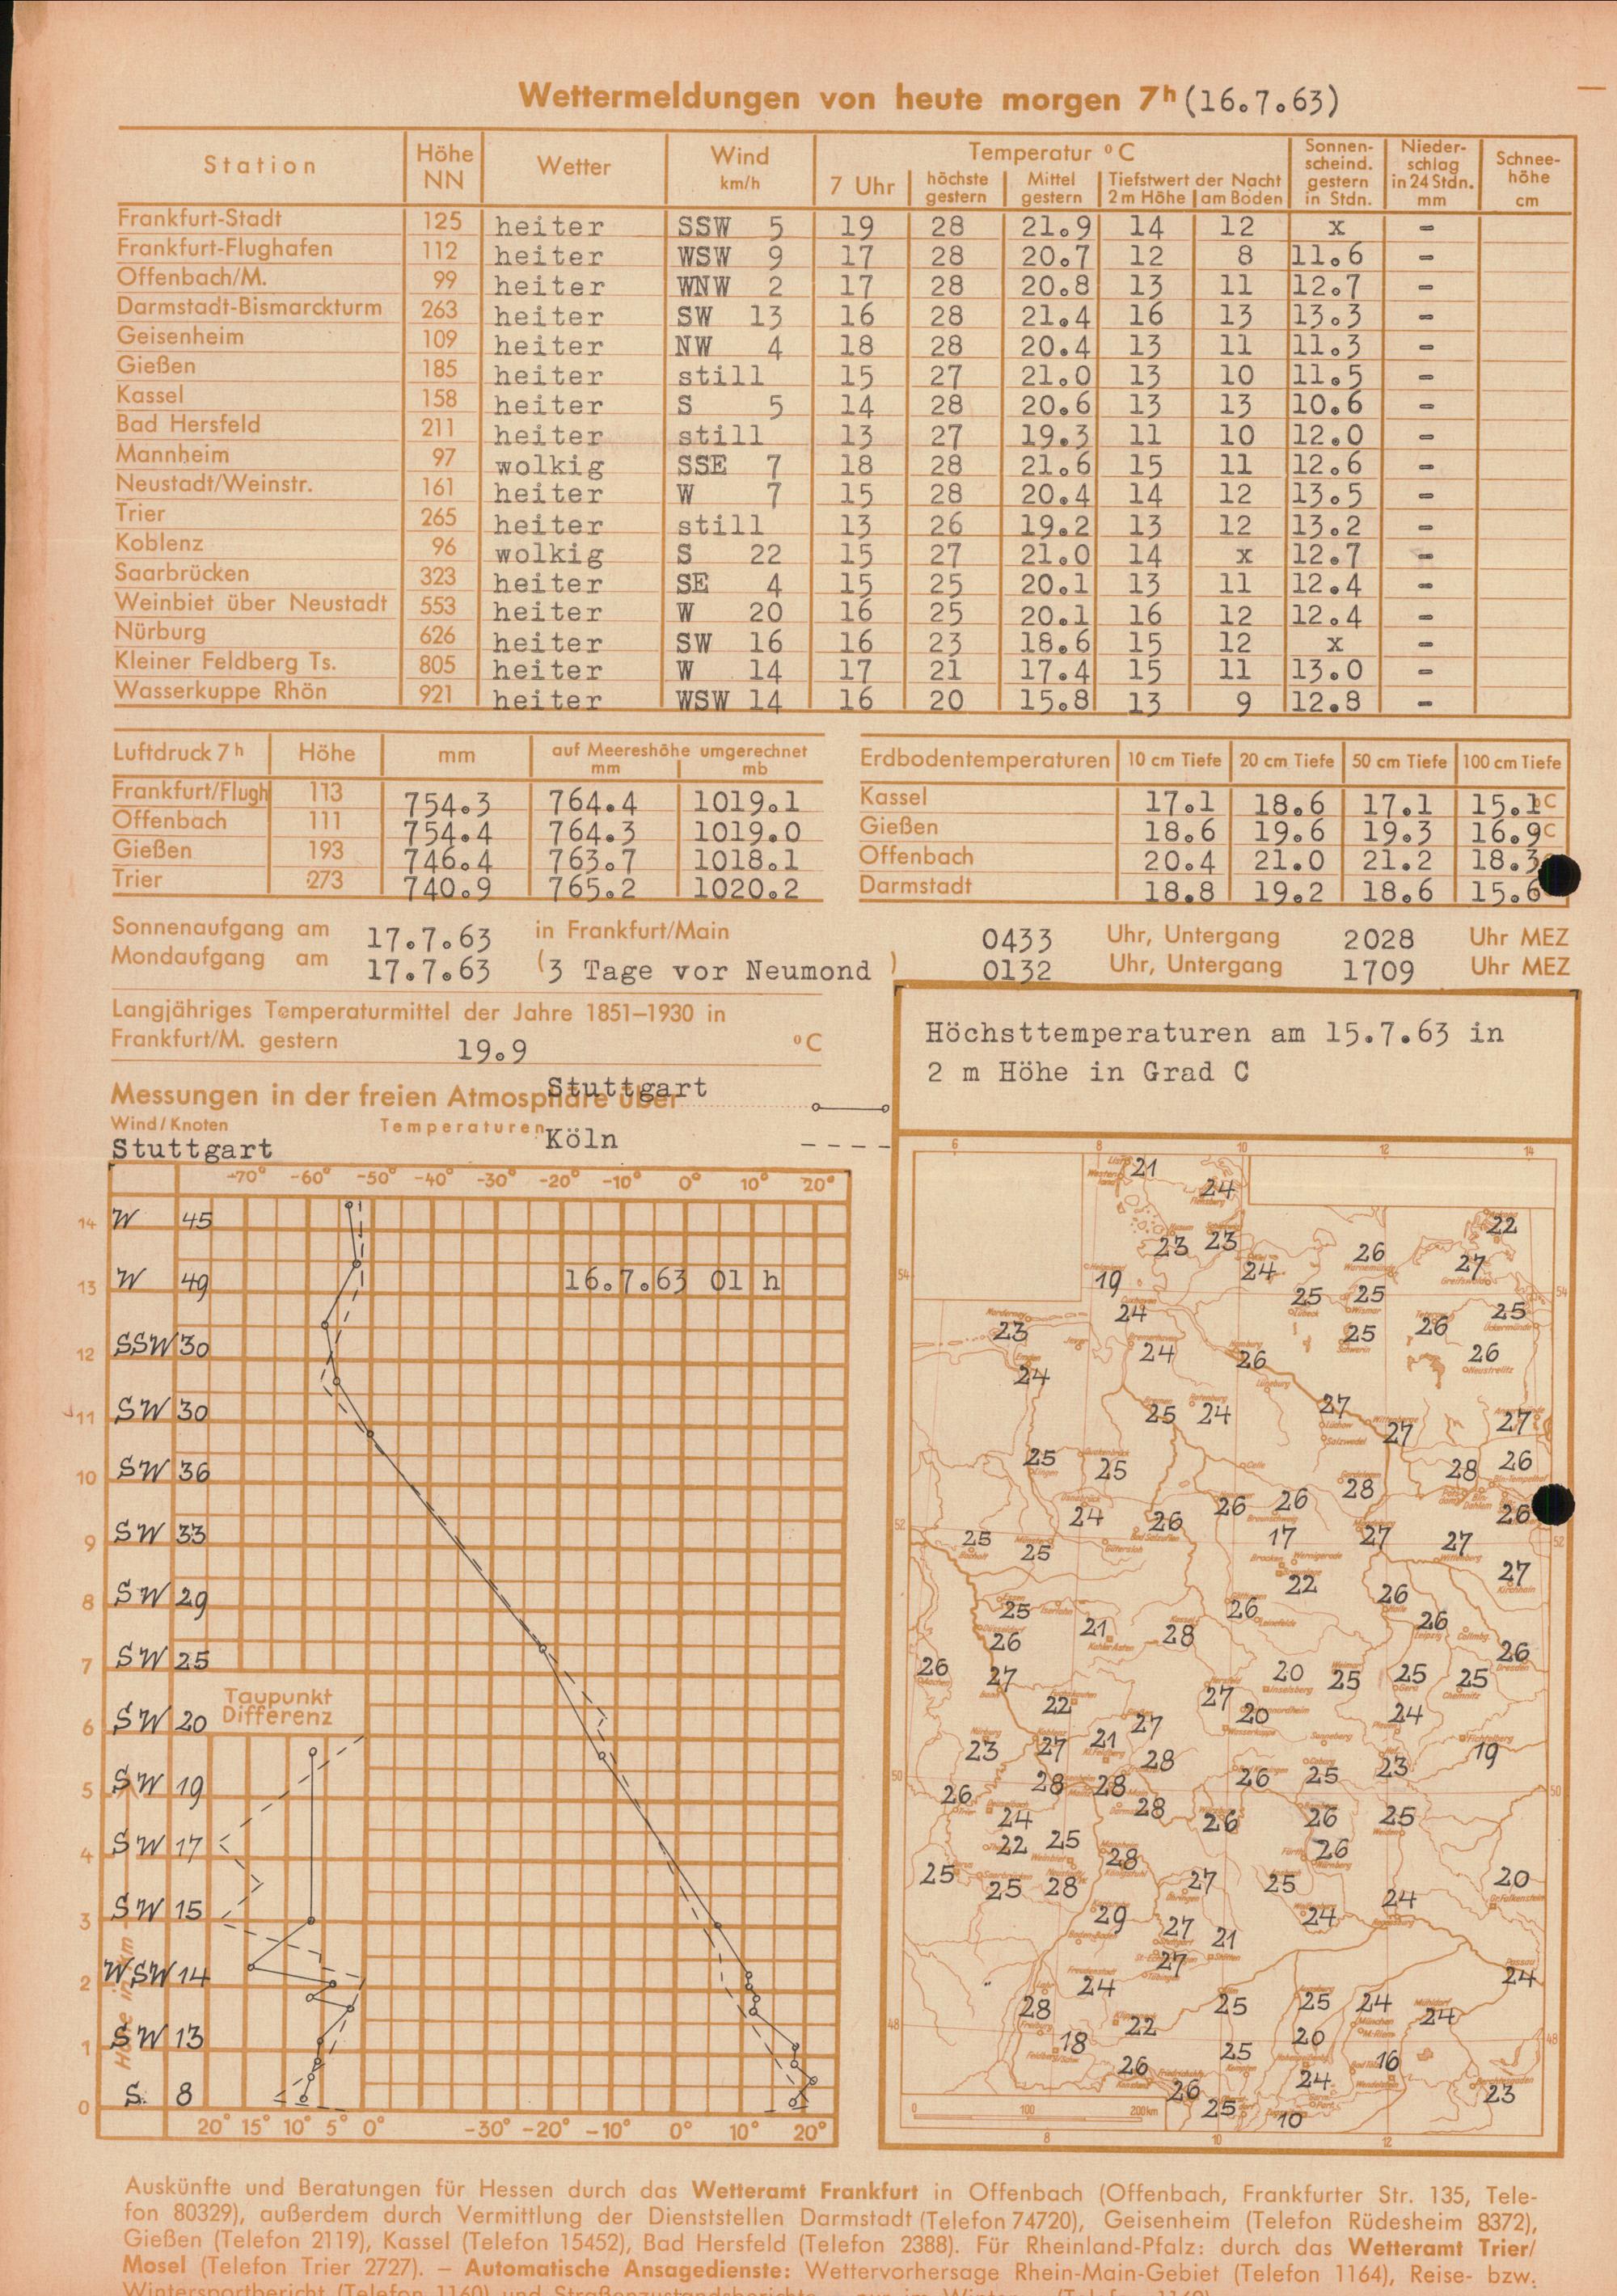 Wettermeldungen von heute morgen 7h (16.7.63)
Station Höhe NN Wetter Wind km/h Temperatur °C 7 Uhr höchste gestern Mittel gestern Tiefstwert der Nacht 2 m Höhe am Boden Sonnenscheind. gestern in Stdn. Nieder-schlag in 24 Stdn. mm Schnee-höhe cm
Frankfurt-Stadt 125 heiter SSW 5 19 28 21.9 14 12 x -
Frankfurt-Flughafen 112 heiter WSW 9 17 28 20.7 12 8 11.6 -
Offenbach/M. 99 heiter WNW 2 17 28 20.8 13 11 12.7 -
Darmstadt-Bismarckturm 263 heiter SW 13 16 28 21.4 16 13 13.3 -
Geisenheim 109 heiter NW 4 18 28 20.4 13 11 11.3 -
Gießen 185 heiter still 15 27 21.0 13 10 11.5 -
Kassel 158 heiter S 5 14 28 20.6 13 13 10.6 -
Bad Hersfeld 211 heiter still 13 27 19.3 11 10 12.0 -
Mannheim 97 wolkig SSE 7 18 28 21.6 15 11 12.6 -
Neustadt/Weinstr. 161 heiter W 7 15 28 20.4 14 12 13.5 -
Trier 265 heiter still 13 26 19.2 13 12 13.2 -
Koblenz 96 wolkig S 22 15 27 21.0 14 x 12.7 -
Saarbrücken 323 heiter SE 4 15 25 20.1 13 11 12.4 -
Weinbiet über Neustadt 553 heiter W 20 16 25 20.1 16 12 12.4 -
Nürburg 626 heiter SW 16 16 23 18.6 15 12 x -
Kleiner Feldberg Ts. 805 heiter W 14 17 21 17.4 15 11 13.0 -
Wasserkuppe Rhön 921 heiter WSW 14 16 20 15.8 13 9 12.8 -
Luftdruck 7h Höhe mm auf Meereshöhe umgerechnet mm mb
Frankfurt/Flugh 113 754.3 764.4 1019.1
Offenbach 111 754.4 764.3 1019.0
Gießen 193 746.4 763.7 1018.1
Trier 273 740.9 765.2 1020.2
Erdbodentemperaturen 10 cm Tiefe 20 cm Tiefe 50 cm Tiefe 100 cm Tiefe
Kassel 17.1 18.6 17.1 15.1 °C
Gießen 18.6 19.6 19.3 16.9 °C
Offenbach 20.4 21.0 21.2 18.3
Darmstadt 18.8 19.2 18.6 15.6
Sonnenaufgang am 17.7.63 in Frankfurt/Main 0433 Uhr, Untergang 2028 Uhr MEZ
Mondaufgang am 17.7.63 (3 Tage vor Neumond ) 0132 Uhr, Untergang 1709 Uhr MEZ
Langjähriges Temperaturmittel der Jahre 1851–1930 in
Frankfurt/M. gestern 19.9 °C
Messungen in der freien Atmosphäre über Stuttgart
Wind/Knoten Temperaturen Köln
Stuttgart
-70° -60° -50° -40° -30° -20° -10° 0° 10° 20°
14 W 45
13 W 49 16.7.63 01 h
12 SSW 30
11 SW 30
10 SW 36
9 SW 33
8 SW 29
7 SW 25
Taupunkt
6 SW 20 Differenz
5 SW 19
4 SW 17
3 SW 15
2 WSW 14
1 SW 13
0 S 8
Höhe in km
20° 15° 10° 5° 0° -30° -20° -10° 0° 10° 20°
Höchsttemperaturen am 15.7.63 in
2 m Höhe in Grad C
6 8 10 12 14
21
24
22
23 23 26 27
19 24
54 54
24 25 25 25
23 24 25 26 26
24 26
25 24 27 27 27
25 25 28 28 26
24 26 26 26 26
52 52
25 25 17 27 27
22 27
25 26 26 26
26 21 28 26
26 27 20 25 25 25
22 27 20 24
23 27 21 27 28 23 19
50 50
26 28 28 26 25
24 28 26 26 25
22 25 28 26
25 25 28 27 25 20
29 24 24
27 21
27 24
24
28 25 25 24 24
22
48 48
18 20 16
26 25 24 23
26 25 10
0 100 200 km
8 10 12
Auskünfte und Beratungen für Hessen durch das Wetteramt Frankfurt in Offenbach (Offenbach, Frankfurter Str. 135, Tele-
fon 80329), außerdem durch Vermittlung der Dienststellen Darmstadt (Telefon 74720), Geisenheim (Telefon Rüdesheim 8372),
Gießen (Telefon 2119), Kassel (Telefon 15452), Bad Hersfeld (Telefon 2388). Für Rheinland-Pfalz: durch das Wetteramt Trier/
Mosel (Telefon Trier 2727). – Automatische Ansagedienste: Wettervorhersage Rhein-Main-Gebiet (Telefon 1164), Reise- bzw.
Wintersportbericht (Telefon 1160) und Straßenzustandsberichte